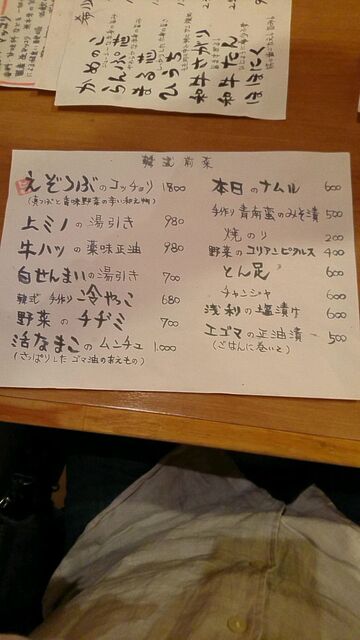 希少
かめのこ
らんぷ芯
まる芯
ひうち
和牛サガリ
和牛たん
ほほにく
韓流前菜
えぞつぶのコッチョリ 1800
上ミノの湯引き 980
牛ハツの薬味正油 980
白せんまいの湯引き 700
韓式 手作り 冷やっこ 680
野菜のチヂミ 700
活なまこのムンチュ 1.000
(さっぱりしたゴマ油のあえもの)
本日のナムル 600
手作り青南蛮のみそ漬 500
焼のり 200
野菜のコリアンピクルス 400
とん足 600
チャンジャ 600
浅利の塩漬け 600
エゴマの正油漬 500
(ごはんに巻いて)